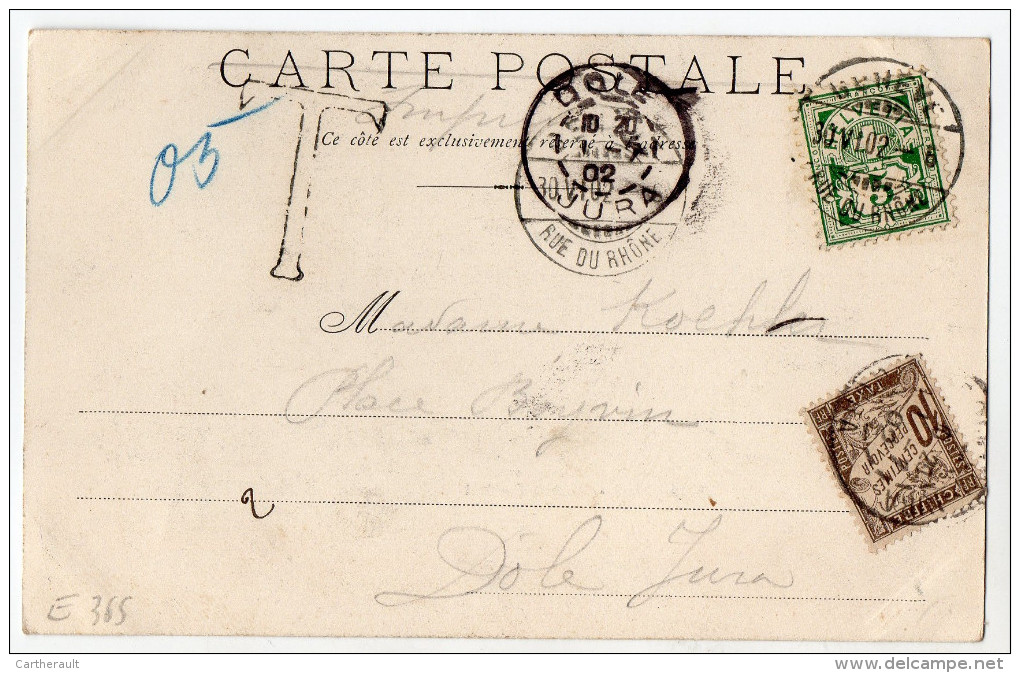 CARTE POSTALE
Ce côté est exclusivement réservé à l'adresse
T
05
DOLE
10 20
02
JURA
30 VI 02
RUE DU RHÔNE
HELVETIA
30 VI 02
8
RUE DU RHÔNE
5
Madame Koehler
Place Boyvin
Dôle Jura
2
CHIFFRE TAXE
10
CENTIMES
A PERCEVOIR
POSTES
E 365
Cartherault
www.delcampe.net